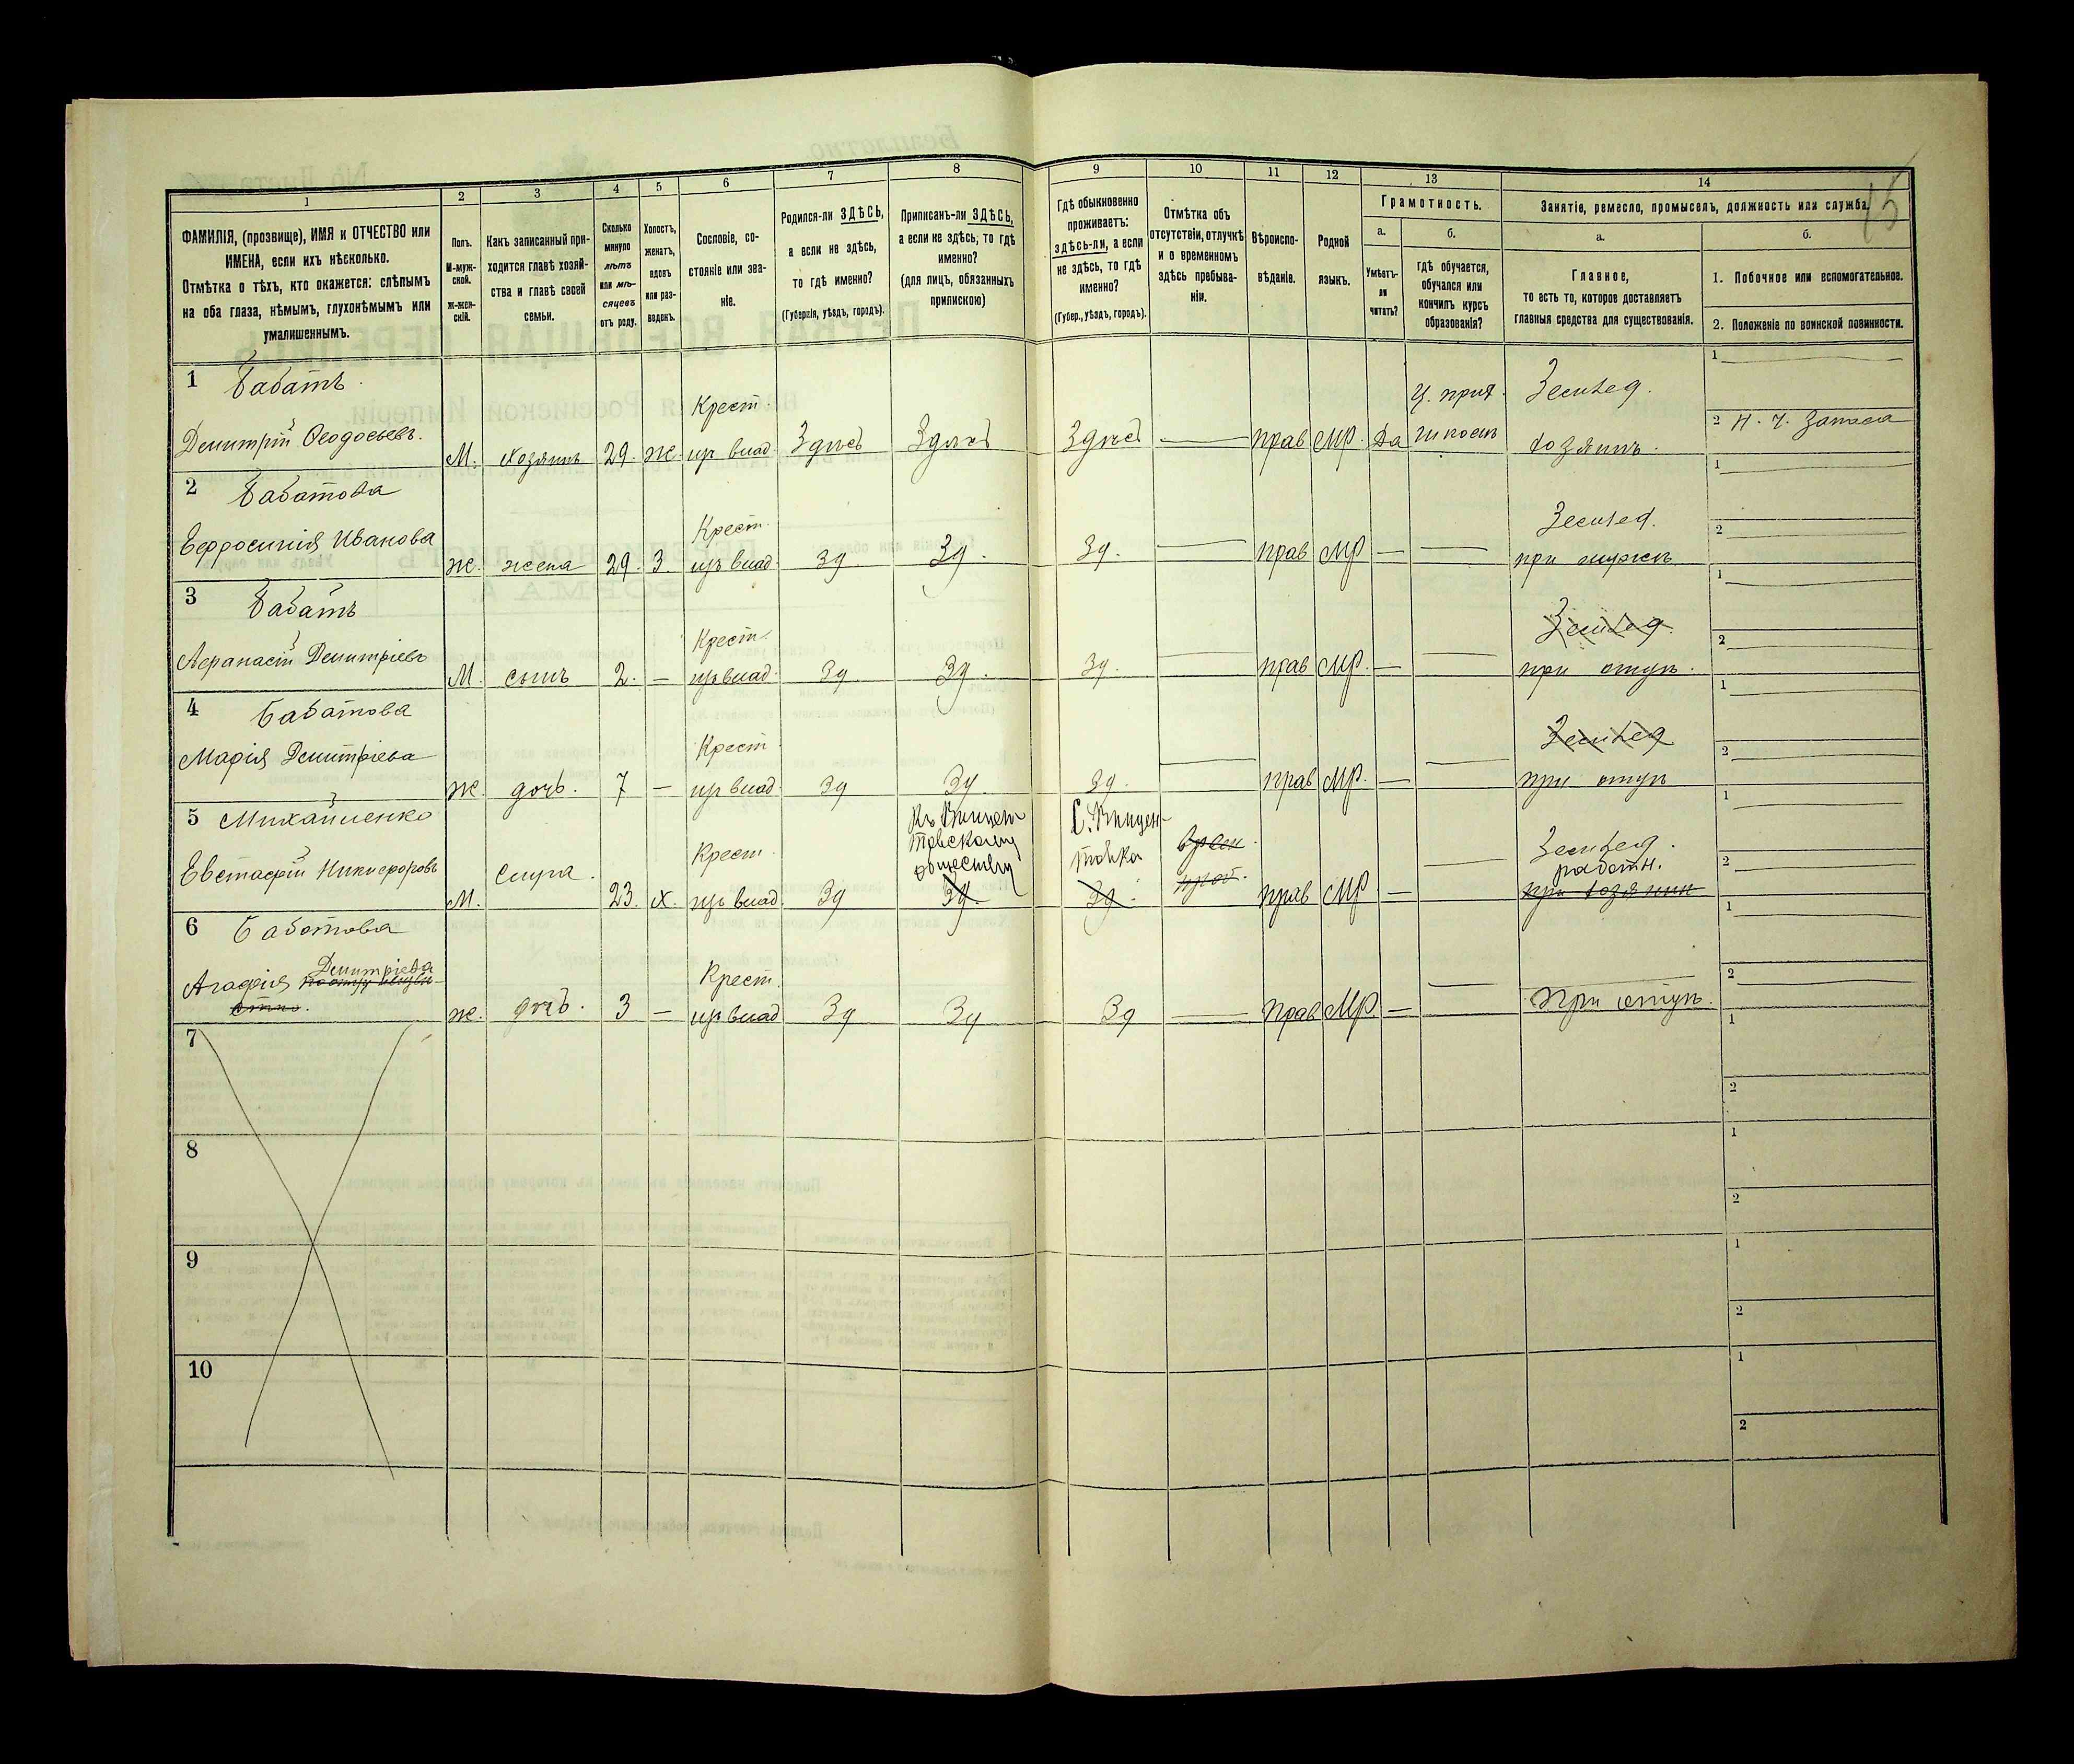 1
2
3
4
5
6
7
8
9
10
11
12
13
14
15
ФАМИЛІЯ, (прозвище), ИМЯ и ОТЧЕСТВО или
ИМЕНА, если ихъ нѣсколько.
Отмѣтка о тѣхъ, кто окажется: слѣпымъ
на оба глаза, нѣмымъ, глухонѣмымъ или
умалишеннымъ.
Полъ.
М-муж-
ской.
Ж-жен-
скій.
Какъ записанный при-
ходится главѣ хозяй-
ства и главѣ своей
семьи.
Сколько
минуло
лѣтъ
или мѣ-
сяцевъ
отъ роду.
Холостъ,
женатъ,
вдовъ
или раз-
веденъ.
Сословіе, со-
стояніе или зва-
ніе.
Родился-ли ЗДѢСЬ,
а если не здѣсь,
то гдѣ именно?
(Губернія, уѣздъ, городъ).
Приписанъ-ли ЗДѢСЬ,
а если не здѣсь, то гдѣ
именно?
(для лицъ, обязанныхъ
припискою)
Гдѣ обыкновенно
проживаетъ:
здѣсь-ли, а если
не здѣсь, то гдѣ
именно?
(Губер., уѣздъ, городъ).
Отмѣтка объ
отсутствіи, отлучкѣ
и о временномъ
здѣсь пребыва-
ніи.
Вѣроиспо-
вѣданіе.
Родной
языкъ.
Грамотность.
а.
Умѣетъ-
ли
читать?
б.
гдѣ обучается,
обучался или
кончилъ курсъ
образованія?
Занятіе, ремесло, промыселъ, должность или служба.
а.
Главное,
то есть то, которое доставляетъ
главныя средства для существованія.
б.
1. Побочное или вспомогательное.
2. Положеніе по воинской повинности.
1 Бабатъ
Димитрій Ѳеодосьевъ.
М. хозяинъ 29. Ж.
Крест.
из влад.
Здѣсь Здѣсь Здѣсь — прав мр. Да
Ц. прих.
школѣ
Землед.
хозяинъ.
1 —
2 Н. Ч. Запаса
2 Бабатова
Ефросинія Иванова
Ж. жена 29. З.
Крест.
изъ влад
Зд Зд. Зд. — прав мр — —
Землед.
при мужѣ
1 —
2 —
3 Бабатъ
Афанасій Димитріевъ
М. сынъ 2. —
Крест.
изъ влад.
Зд Зд. Зд. — прав мр. — —
Землед.
при отцѣ.
1 —
2 —
4 Бабатова
Марія Димитріева
Ж. дочь. 7 —
Крест
из влад.
Зд Зд. Зд. — прав мр. — —
Землед
при отцѣ
1 —
2 —
5 Михайленко
Евстафій Никифоровъ
М. слуга. 23. Х.
Крест.
изъ влад.
Зд
Къ Винцен-
товскому
обществу
Зд.
С. Винцен-
товка
Зд.
врем.
преб.
прав мр — —
Землед.
работн.
при хозяинѣ
1 —
2 —
6 Бабатова
Агафія Димитріева
Ж. дочь. 3 —
Крест.
из влад
Зд Зд Зд — прав мр — —
При отцѣ.
1 —
2 —
7
1
2
8
1
2
9
1
2
10
1
2